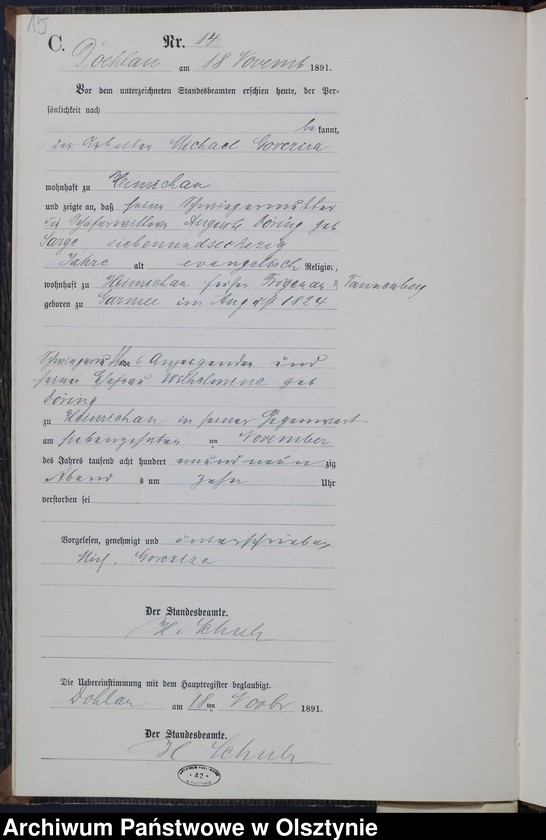 15
C.
Nr. 14
Döhlau am 18 Novemb 1891.
Vor dem unterzeichneten Standesbeamten erschien heute, der Per-
sönlichkeit nach
bekannt,
der Arbeiter Michael
wohnhaft zu Heinrichau
und zeigte an, daß seine Schwiegermutter
die Auguste Döring geb
Sarge, siebenundsechszig
Jahre alt evangelisch Religion,
wohnhaft zu Heinrichau früher Frögenau & Tannenberg
geboren zu im August 1824
Anzeigenden und
seiner Ehefrau Wilhelmine geb
Döring
zu Heinrichau in seiner Gegenwart
am siebenzehnten ten November
des Jahres tausend acht hundert einundneunzig
Abend s um zehn Uhr
verstorben sei
Vorgelesen, genehmigt und unterschrieben
Mich.
Der Standesbeamte.
H. Schulz
Die Uebereinstimmung mit dem Hauptregister beglaubigt.
Döhlau am 18ten Novbr 1891.
Der Standesbeamte.
H Schulz
42
Archiwum Państwowe w Olsztynie